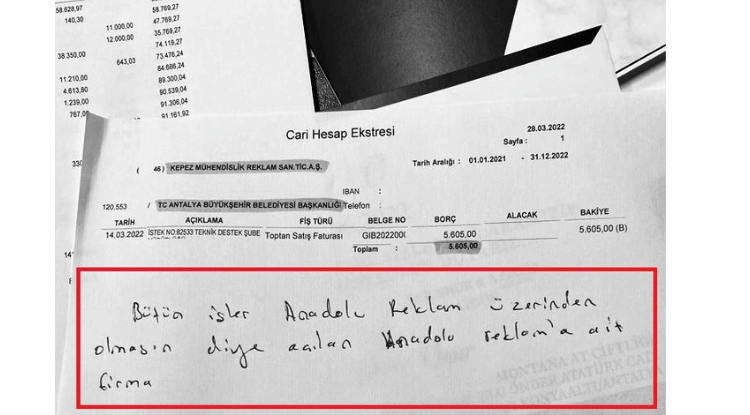 58.628,97 58.769,27
140,30 47.769,27
11.000,00 35.769,27
12.000,00 74.119,27
38.350,00 73.476,24
643,03 84.686,24
11.210,00 89.300,04
4.613,80 90.539,04
1.239,00 91.306,04
767,00 91.161,92
Cari Hesap Ekstresi
28.03.2022
Sayfa : 1
( 46) KEPEZ MÜHENDİSLİK REKLAM SAN.TİC.A.Ş.
Tarih Aralığı : 01.01.2021 - 31.12.2022
IBAN :
120.553 / TC ANTALYA BÜYÜKŞEHİR BELEDİYESİ BAŞKANLIĞI Telefon :
TARİH AÇIKLAMA FİŞ TÜRÜ BELGE NO BORÇ ALACAK BAKİYE
14.03.2022 İSTEK NO:82533 TEKNİK DESTEK ŞUBE Toptan Satış Faturası GIB2022000 5.605,00 5.605,00 (B)
Toplam : 5.605,00
Bütün işler Anadolu Reklam üzerinden
olmasın diye açılan Anadolu reklam'a ait
firma
MONTANA AT ÇİFTLİĞ
ÖNDER ATATÜRK CAD
KONYAALTI/ANTALYA